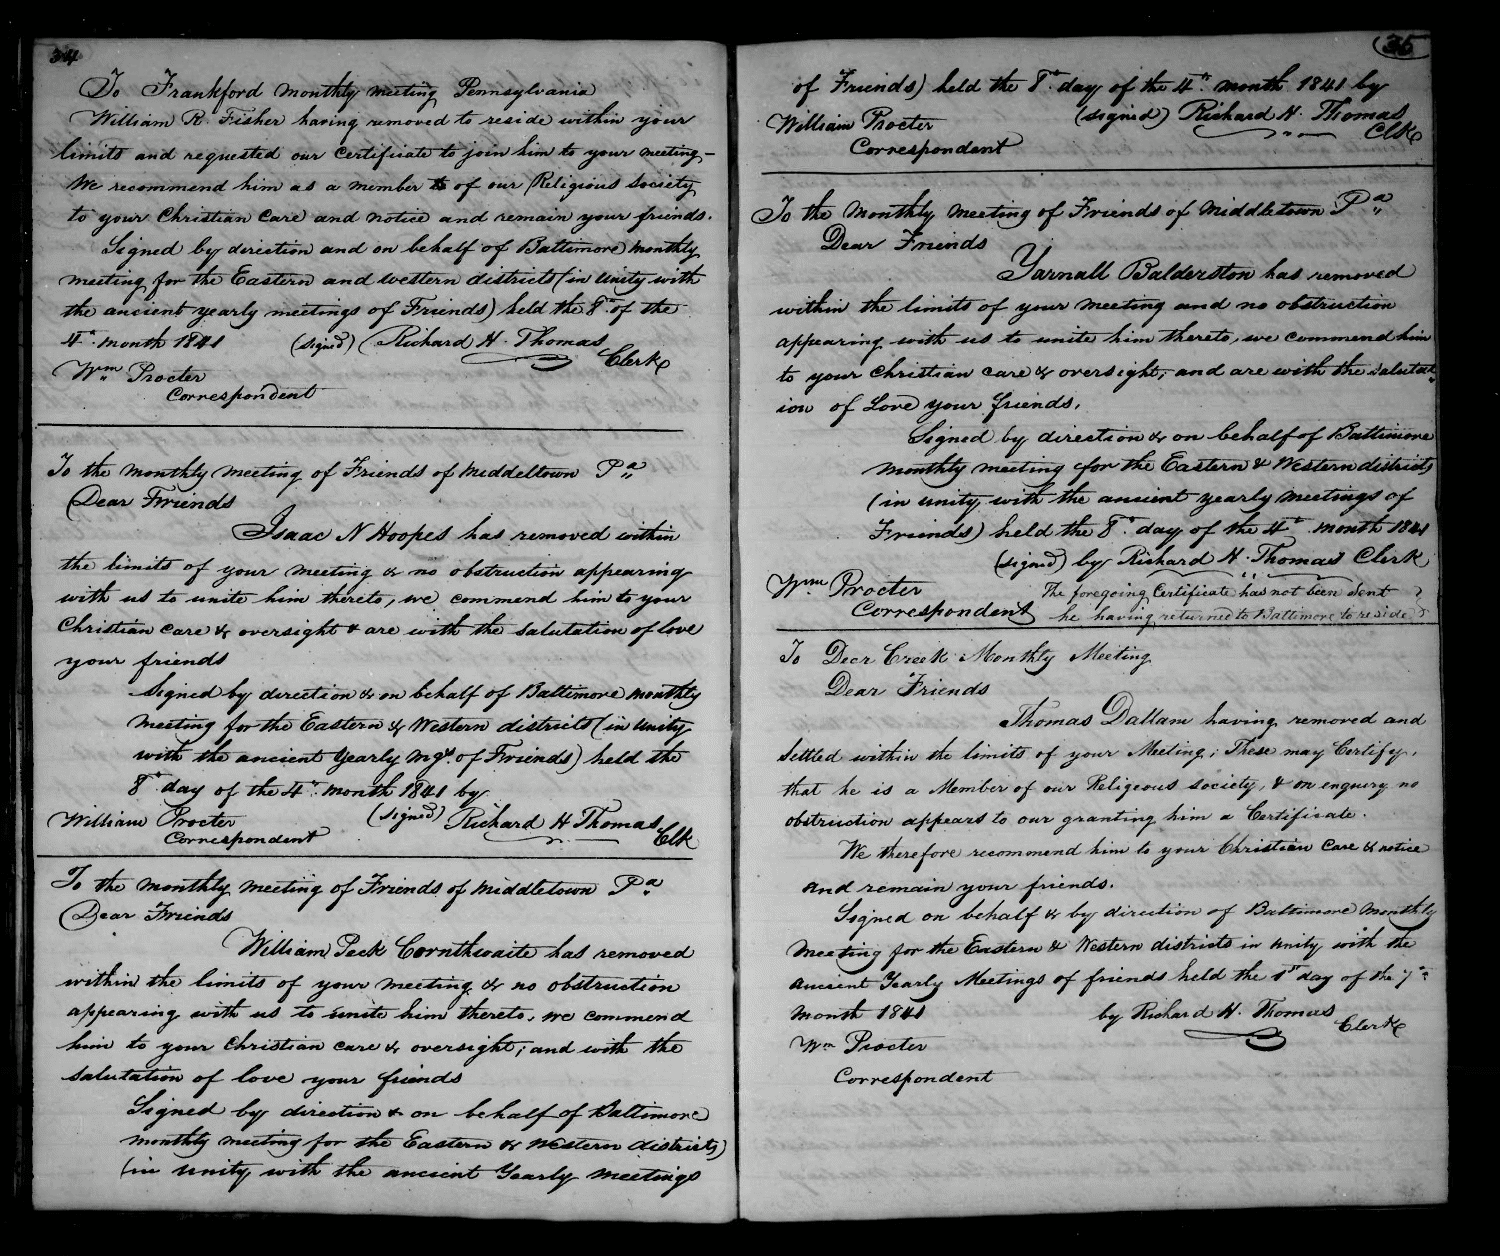 34
To Frankford monthly meeting Pennsylvania
William R. Fisher having removed to reside within your
limits and requested our certificate to join him to your meeting-
We recommend him as a member to of our Religious Society
to your Christian Care and notice and remain your friends.
Signed by direction and on behalf of Baltimore monthly
meeting for the Eastern and western districts (in unity with
the ancient yearly meetings of Friends) held the 8th of the
4th month 1841 (signed) Richard H. Thomas
Clerk
Wm Procter
Correspondent
To the monthly meeting of Friends of Middeltown Pa
Dear Friends
Isaac N Hoopes has removed within
the limits of your meeting & no obstruction appearing
with us to unite him thereto, we commend him to your
Christian care & oversight & are with the salutation of love
your friends
Signed by direction & on behalf of Baltimore monthly
meeting for the Eastern & Western districts (in unity
with the ancient yearly mgs. of Friends) held the
8th day of the 4th month 1841 by
William Procter (signed) Richard H Thomas
Correspondent Clk
To the monthly meeting of Friends of Middletown Pa
Dear Friends
William Peck Cornthwaite has removed
within the limits of your meeting & no obstruction
appearing with us to unite him thereto, we commend
him to your Christian care & oversight; and with the
salutation of love your friends
Signed by direction & on behalf of Baltimore
monthly meeting for the Eastern & Western districts
(in unity with the ancient Yearly meetings
35
of Friends) held the 8th day of the 4th month 1841 by
(signed) Richard H. Thomas
William Procter Clk
Correspondent
To the Monthly Meeting of Friends of Middletown Pa
Dear Friends
Yarnall Balderston has removed
within the limits of your meeting and no obstruction
appearing with us to unite him thereto, we commend him
to your Christian care & oversight, and are with the salutat
ion of Love your friends,
Signed by direction & on behalf of Baltimore
monthly meeting for the Eastern & Western districts
(in unity with the ancient yearly meetings of
Friends) held the 8th day of the 4th month 1841
(signed) by Richard H. Thomas Clerk
Wm Procter The foregoing Certificate has not been sent
Correspondent he having returned to Baltimore to reside
To Deer Creek Monthly Meeting
Dear Friends
Thomas Dallam having removed and
settled within the limits of your Meeting; These may Certify,
that he is a Member of our Religious society, & on enquiry no
obstruction appears to our granting him a Certificate.
We therefore recommend him to your Christian care & notice
and remain your friends.
Signed on behalf & by direction of Baltimore monthly
meeting for the Eastern & Western districts in unity with the
ancient Yearly Meetings of friends held the 1st day of the 7th
month 1841 by Richard H. Thomas
Clerk
Wm Procter
Correspondent